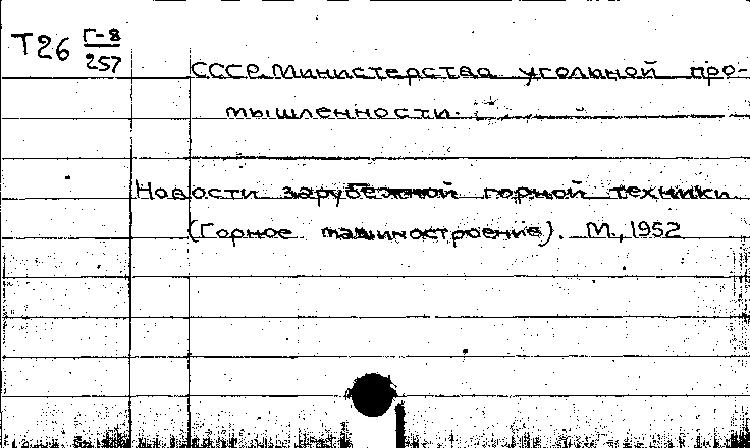 Т26 Г-8
257
СССР. Министерства угольной про-
мышленности.
Новости зарубежной горной техники
(Горное машиностроение). М., 1952